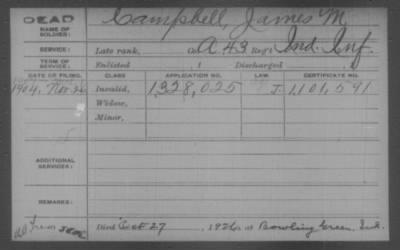 DEAD
NAME OF SOLDIER: Campbell, James M
SERVICE: Late rank, Co. A, 43 Reg't Ind. Inf.
TERM OF SERVICE: Enlisted , 1 Discharged
DATE OF FILING. CLASS APPLICATION NO. LAW CERTIFICATE NO.
1904, Nov. 26 Invalid, 1,328,025 J 1,101,591
Widow,
Minor,
ADDITIONAL SERVICES:
REMARKS:
Died Oct 27 1926 at Bowling Green, Ind.